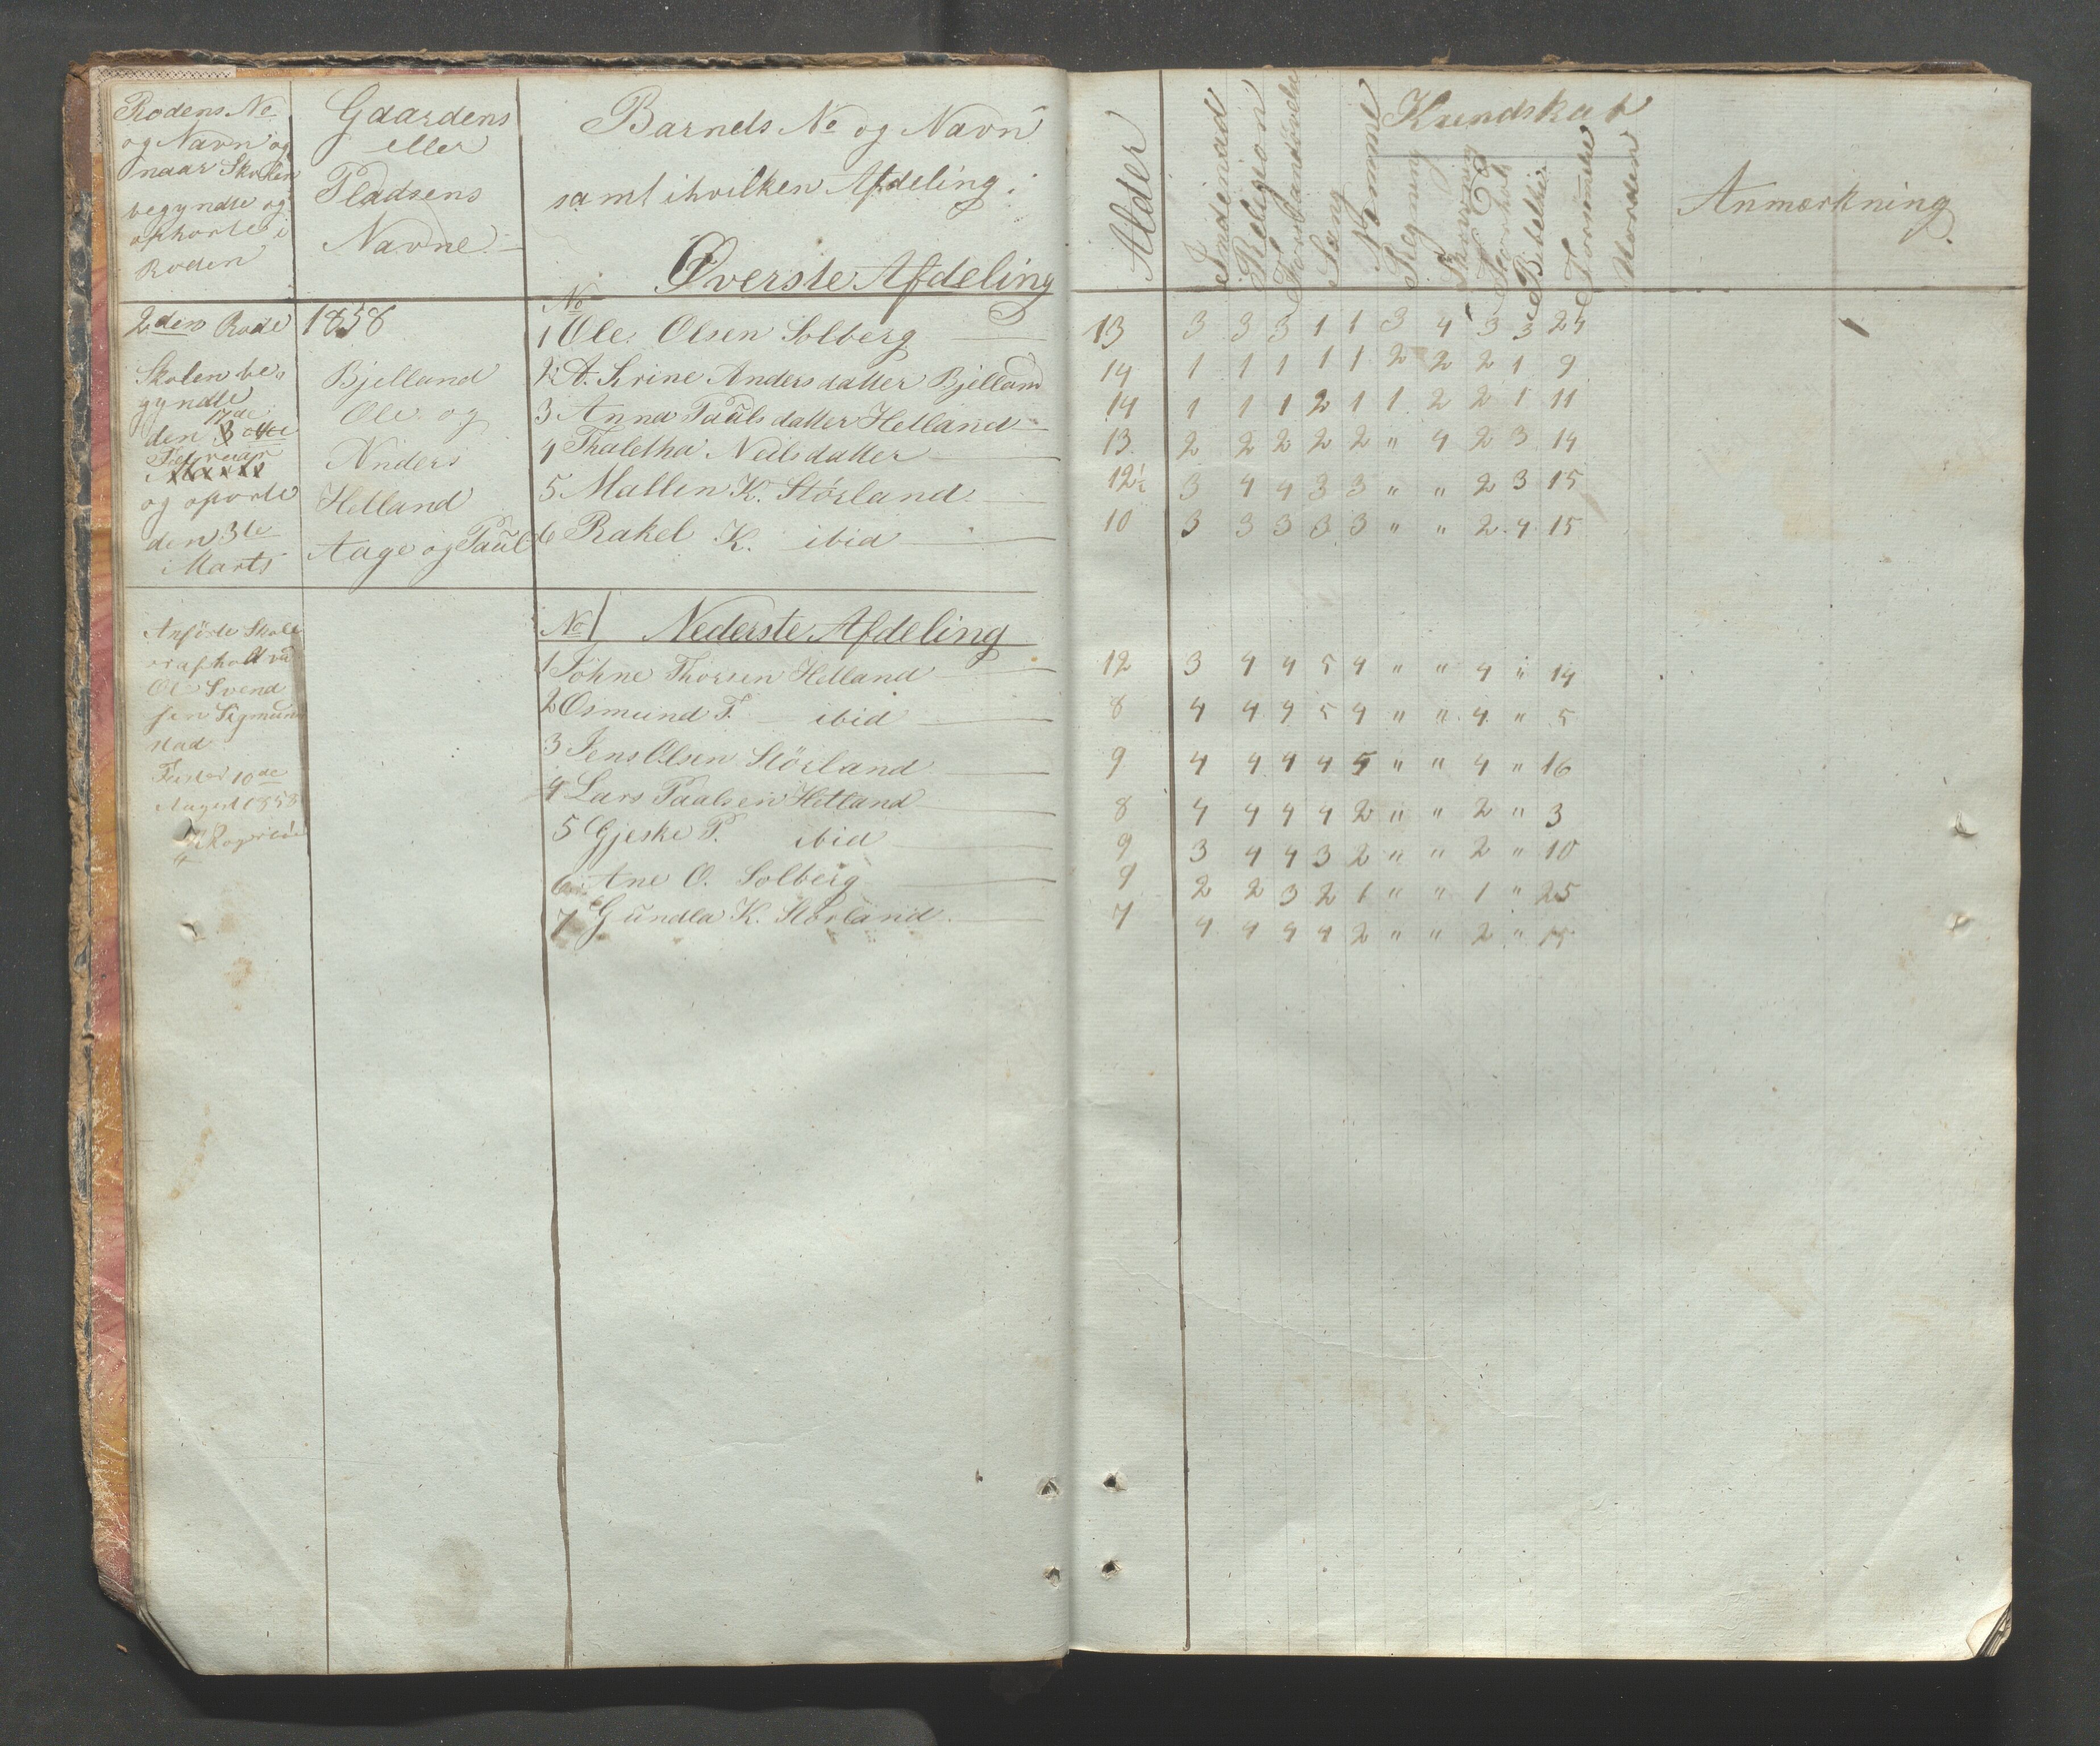 Rodens No
og Navn og
naar Skolen
begyndte og
ophorte i
Roden
Gaardens
eller
Pladsens
Navne
Barnets No og Navn
samt ihvilken Afdeling
Øverste Afdeling
Alder
Kundskab
Indenad
Religion
Sang
Nemme
Regning
Skrivning
Forhold
Bibelhis
Forsømte
Anmærkning
2den Rode
Skolen be„
gyndte
17de
den 3 
Februar
Marts
og oporte
den 3te
Marts
1858
Bjelland
Ole og
Anders
Helland
Aage og Paul
No
1 Ole Olsen Solberg 13 3 3 3 1 1 3 4 3 3 24
2 A. Serine Andersdatter Bjelland 14 1 1 1 1 1 2 2 2 1 9
3 Anna Paulsdatter Helland 14 1 1 1 2 1 1 2 2 1 11
4 Thaletha Neilsdatter 13 2 2 2 2 2 „ 4 2 3 14
5 Mallen K. Störland 12½ 3 4 4 3 3 „ „ 2 3 15
6 Rakel K. ibid 10 3 3 3 3 3 „ „ 2 4 15
Anförte Skole
er afholt 
Ole Svend
sen Sigmund
stad
10de
August 1858
No Nederste Afdeling
1 Töhne Thorsen Helland 12 3 4 4 5 4 „ „ 4 „ 14
2 Osmund T. ibid 8 4 4 4 5 4 „ „ 4 „ 5
3 Jens Olsen Störland 9 4 4 4 4 5 „ „ 4 „ 16
4 Lars Paalsen Hetland 8 4 4 4 4 2 „ „ 2 „ 3
5 Gjeske P. ibid 9 3 4 4 3 2 „ „ 2 „ 10
6 Ane O. Solberg 9 2 2 3 2 1 „ „ 1 „ 25
7 Gundla K. Störland 7 4 4 4 4 2 „ „ 2 „ 15